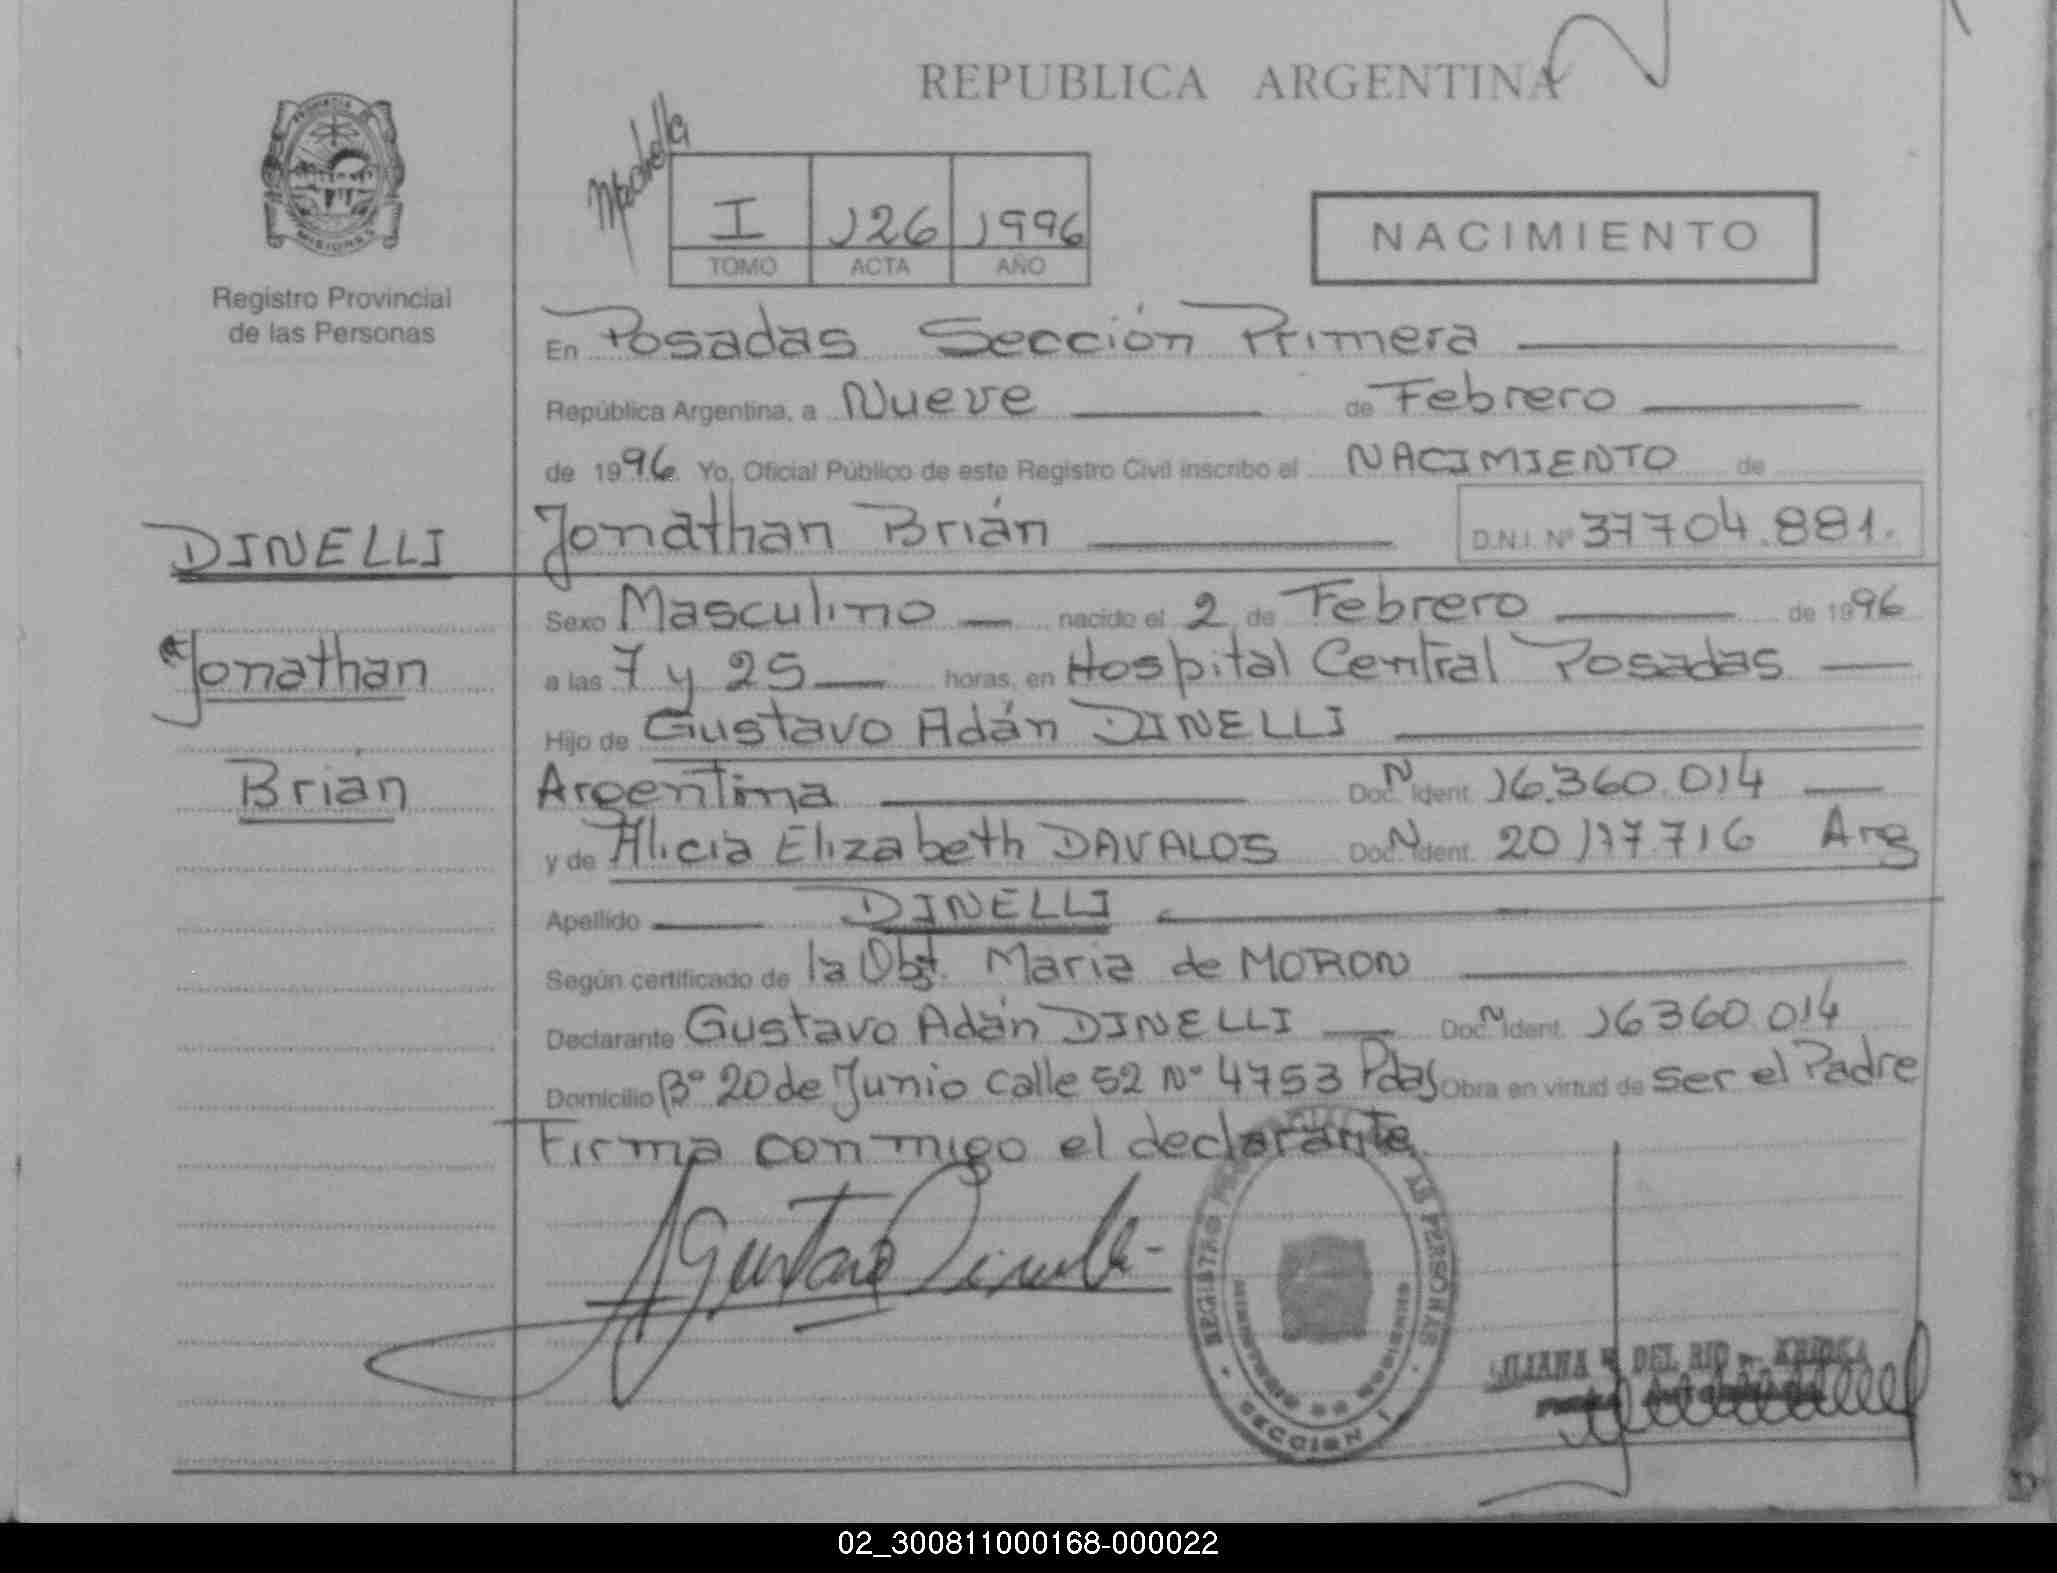 REPUBLICA ARGENTINA
PROVINCIA
MISIONES
Registro Provincial
de las Personas
I 126 1996
TOMO ACTA AÑO
NACIMIENTO
En Posadas Sección Primera
República Argentina, a Nueve de Febrero
de 1996 Yo, Oficial Público de este Registro Civil inscribo el NACIMIENTO de
DINELLI Jonathan Brián D.N.I. Nº 37704.881.
Sexo Masculino nacido el 2 de Febrero de 1996
Jonathan
a las 7 y 25 horas, en Hospital Central Posadas
Hijo de Gustavo Adán DINELLI
Brián
Argentina Doc. N Ident. 16.360.014
y de Alicia Elizabeth DAVALOS Doc. N Ident. 20 177 716 Arg
Apellido DINELLI
Según certificado de la Obst. Maria de MORON
Declarante Gustavo Adán DINELLI Doc. N Ident. 16360.014
Domicilio Bº 20 de Junio Calle 52 Nº 4753 Pdas Obra en virtud de ser el Padre
Firma conmigo el declarante
Gustavo Dinelli
REGISTRO DE LAS PERSONAS
MISIONES
SECCION 1
DEL RIO
02_300811000168-000022